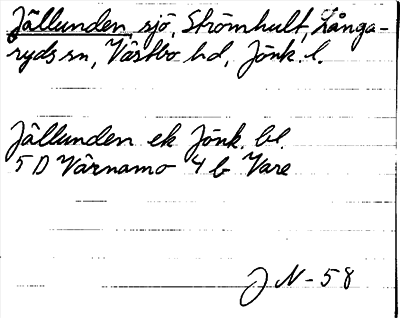 Jällunden sjö, Strömhult, Långa-
ryds sn, Västbo hd, Jönk. l.
Jällunden ek Jönk. bl.
5 D Värnamo 4 b Vare
J N - 58